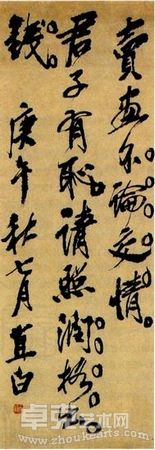 賣畫不論交情
君子有恥請照潤格出
錢 庚午秋七月直白
卓克艺术网
www.zhoukearts.com